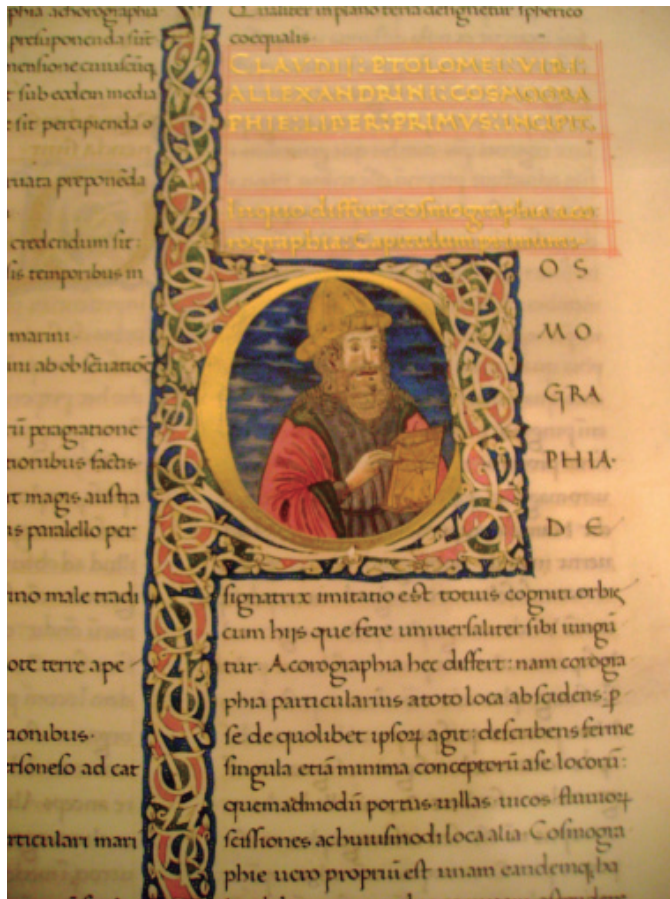 phia achorographia
presuponenda sūt
mensione cuiuscūq
t sub eodem media
t sit percipienda o
ruata preponēda
credendum sit:
sis temporibus in
marini
uni ab obseruatiōe
rū peragratione
tionibus factis
t magis austra
is paralello per
rino male tradi
ote terre ape
tionibus·
rsoneso ad cat
rticulari mari
Qualiter in plano terra designetur spherico
coequalis
CLAVDII: PTOLOMEI: VIRI:
ALLEXANDRINI: COSMOGRA
PHIE: LIBER: PRIMVS: INCIPIT.
In quo differt cosmographia a co
rographia: Capitulum primum·
C
O S
M O
GRA
PHIA·
D E
signatrix imitatio est totius cogniti orbis
cum hijs que fere uniuersaliter sibi iungū
tur· Acorographia hec differt: nam corogra
phia particularius atoto loca abscidens: ꝑ
se de quolibet ipsoꝝ agit: describens ferme
singula etiā minima conceptorū ase locorū:
quemadmodū portus uillas uicos fluuioꝝ
scissiones achuiusmodi loca alia· Cosmogra
phie uero propriū est unam eandemq; ha